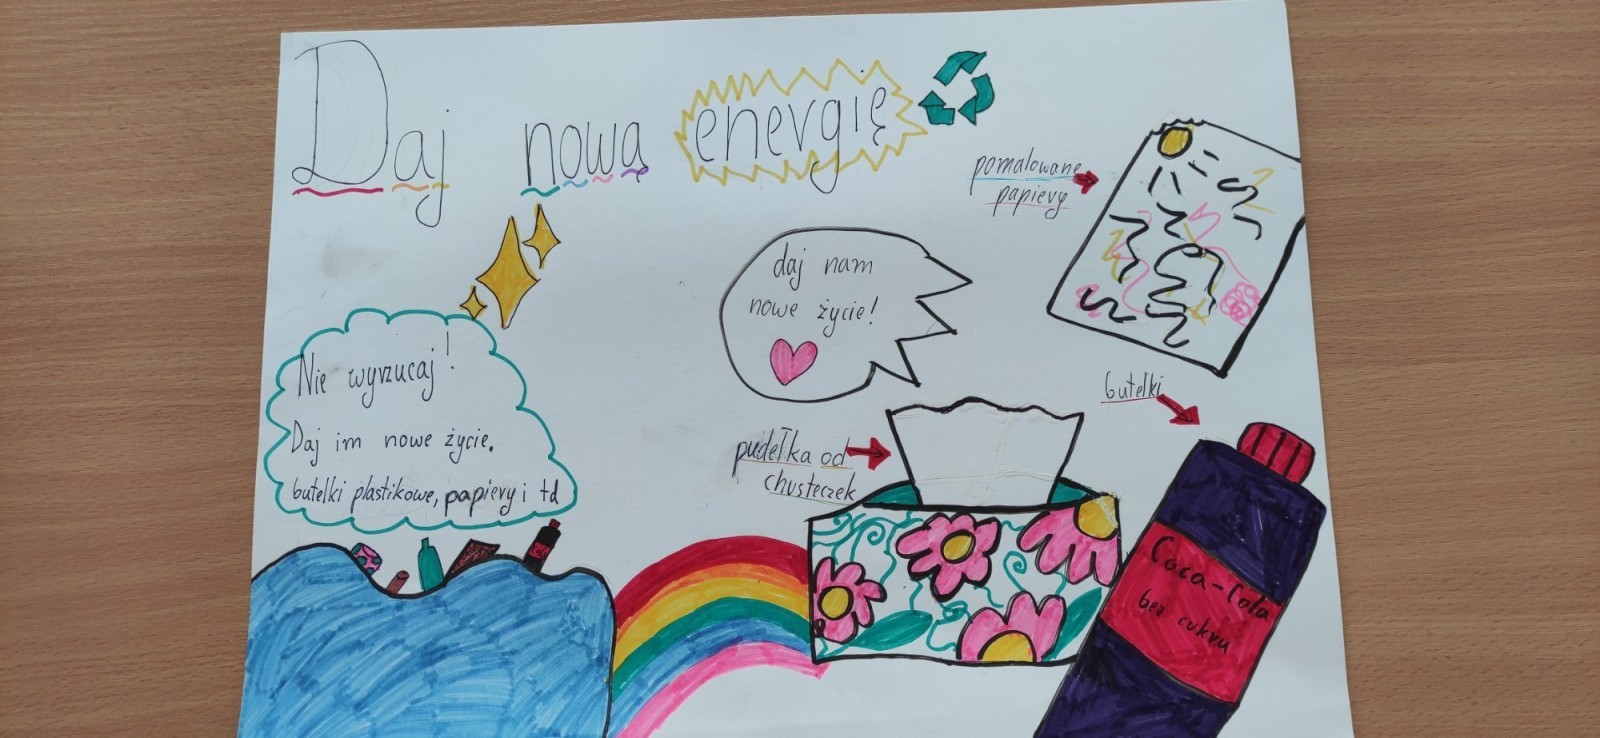 Daj nową energię
pomalowane
papiery
daj nam
nowe życie!
Nie wyrzucaj!
Daj im nowe życie.
butelki plastikowe, papiery i td
pudełka od
chusteczek
butelki
Coca-Cola
bez cukru